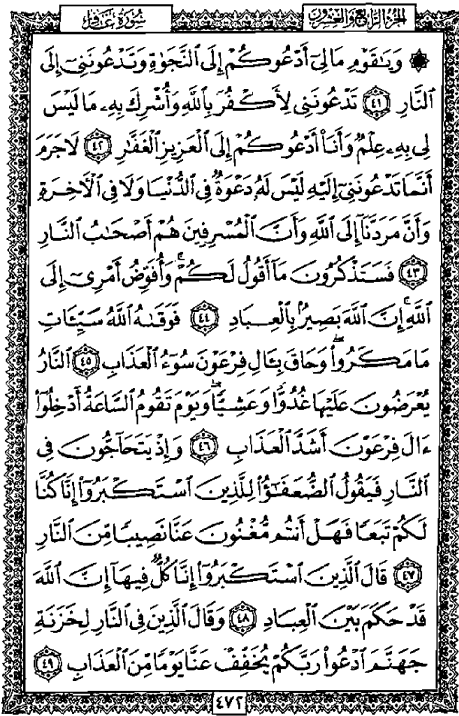 سُورَةُ غَافِر
الجُزْءُ الرَّابِعُ وَالعِشْرُونَ
۞ وَيَٰقَوْمِ مَالِىٓ أَدْعُوكُمْ إِلَى ٱلنَّجَوٰةِ وَتَدْعُونَنِىٓ إِلَى
ٱلنَّارِ ٤١ تَدْعُونَنِى لِأَكْفُرَ بِٱللَّهِ وَأُشْرِكَ بِهِۦ مَا لَيْسَ
لِى بِهِۦ عِلْمٌ وَأَنَا۠ أَدْعُوكُمْ إِلَى ٱلْعَزِيزِ ٱلْغَفَّٰرِ ٤٢ لَا جَرَمَ
أَنَّمَا تَدْعُونَنِىٓ إِلَيْهِ لَيْسَ لَهُۥ دَعْوَةٌ فِى ٱلدُّنْيَا وَلَا فِى ٱلْءَاخِرَةِ
وَأَنَّ مَرَدَّنَآ إِلَى ٱللَّهِ وَأَنَّ ٱلْمُسْرِفِينَ هُمْ أَصْحَٰبُ ٱلنَّارِ
٤٣ فَسَتَذْكُرُونَ مَآ أَقُولُ لَكُمْ ۚ وَأُفَوِّضُ أَمْرِىٓ إِلَى
ٱللَّهِ ۚ إِنَّ ٱللَّهَ بَصِيرٌۢ بِٱلْعِبَادِ ٤٤ فَوَقَىٰهُ ٱللَّهُ سَيِّـَٔاتِ
مَا مَكَرُوا۟ ۖ وَحَاقَ بِـَٔالِ فِرْعَوْنَ سُوٓءُ ٱلْعَذَابِ ٤٥ ٱلنَّارُ
يُعْرَضُونَ عَلَيْهَا غُدُوًّا وَعَشِيًّا ۖ وَيَوْمَ تَقُومُ ٱلسَّاعَةُ أَدْخِلُوٓا۟
ءَالَ فِرْعَوْنَ أَشَدَّ ٱلْعَذَابِ ٤٦ وَإِذْ يَتَحَآجُّونَ فِى
ٱلنَّارِ فَيَقُولُ ٱلضُّعَفَٰٓؤُا۟ لِلَّذِينَ ٱسْتَكْبَرُوٓا۟ إِنَّا كُنَّا
لَكُمْ تَبَعًا فَهَلْ أَنتُم مُّغْنُونَ عَنَّا نَصِيبًا مِّنَ ٱلنَّارِ
٤٧ قَالَ ٱلَّذِينَ ٱسْتَكْبَرُوٓا۟ إِنَّا كُلٌّ فِيهَآ إِنَّ ٱللَّهَ
قَدْ حَكَمَ بَيْنَ ٱلْعِبَادِ ٤٨ وَقَالَ ٱلَّذِينَ فِى ٱلنَّارِ لِخَزَنَةِ
جَهَنَّمَ ٱدْعُوا۟ رَبَّكُمْ يُخَفِّفْ عَنَّا يَوْمًا مِّنَ ٱلْعَذَابِ ٤٩
٤٧٢